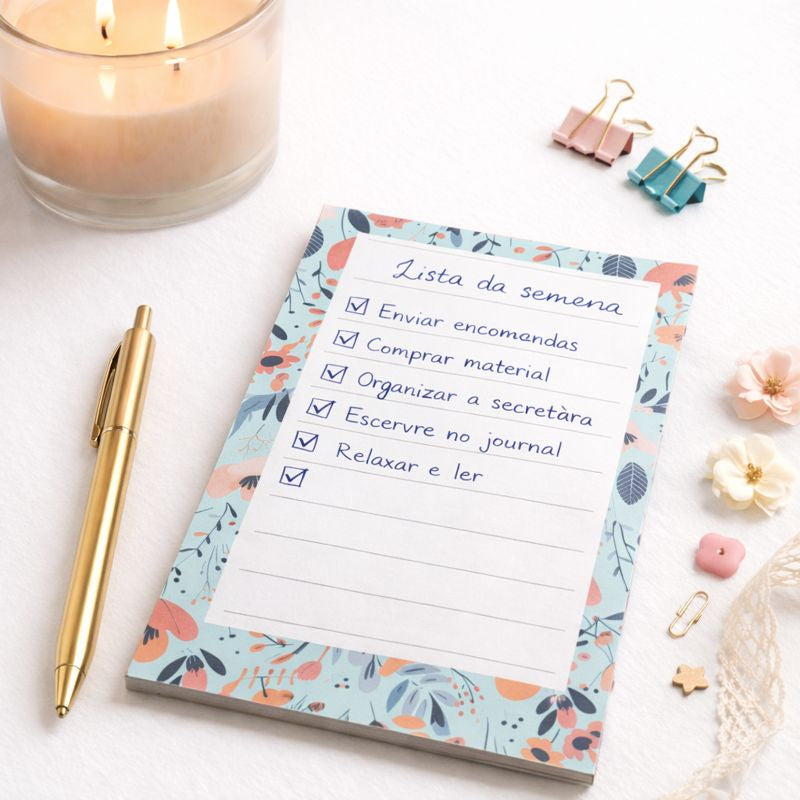 Lista da semena
Enviar encomendas
Comprar material
Organizar a secretàra
Escervre no journal
Relaxar e ler